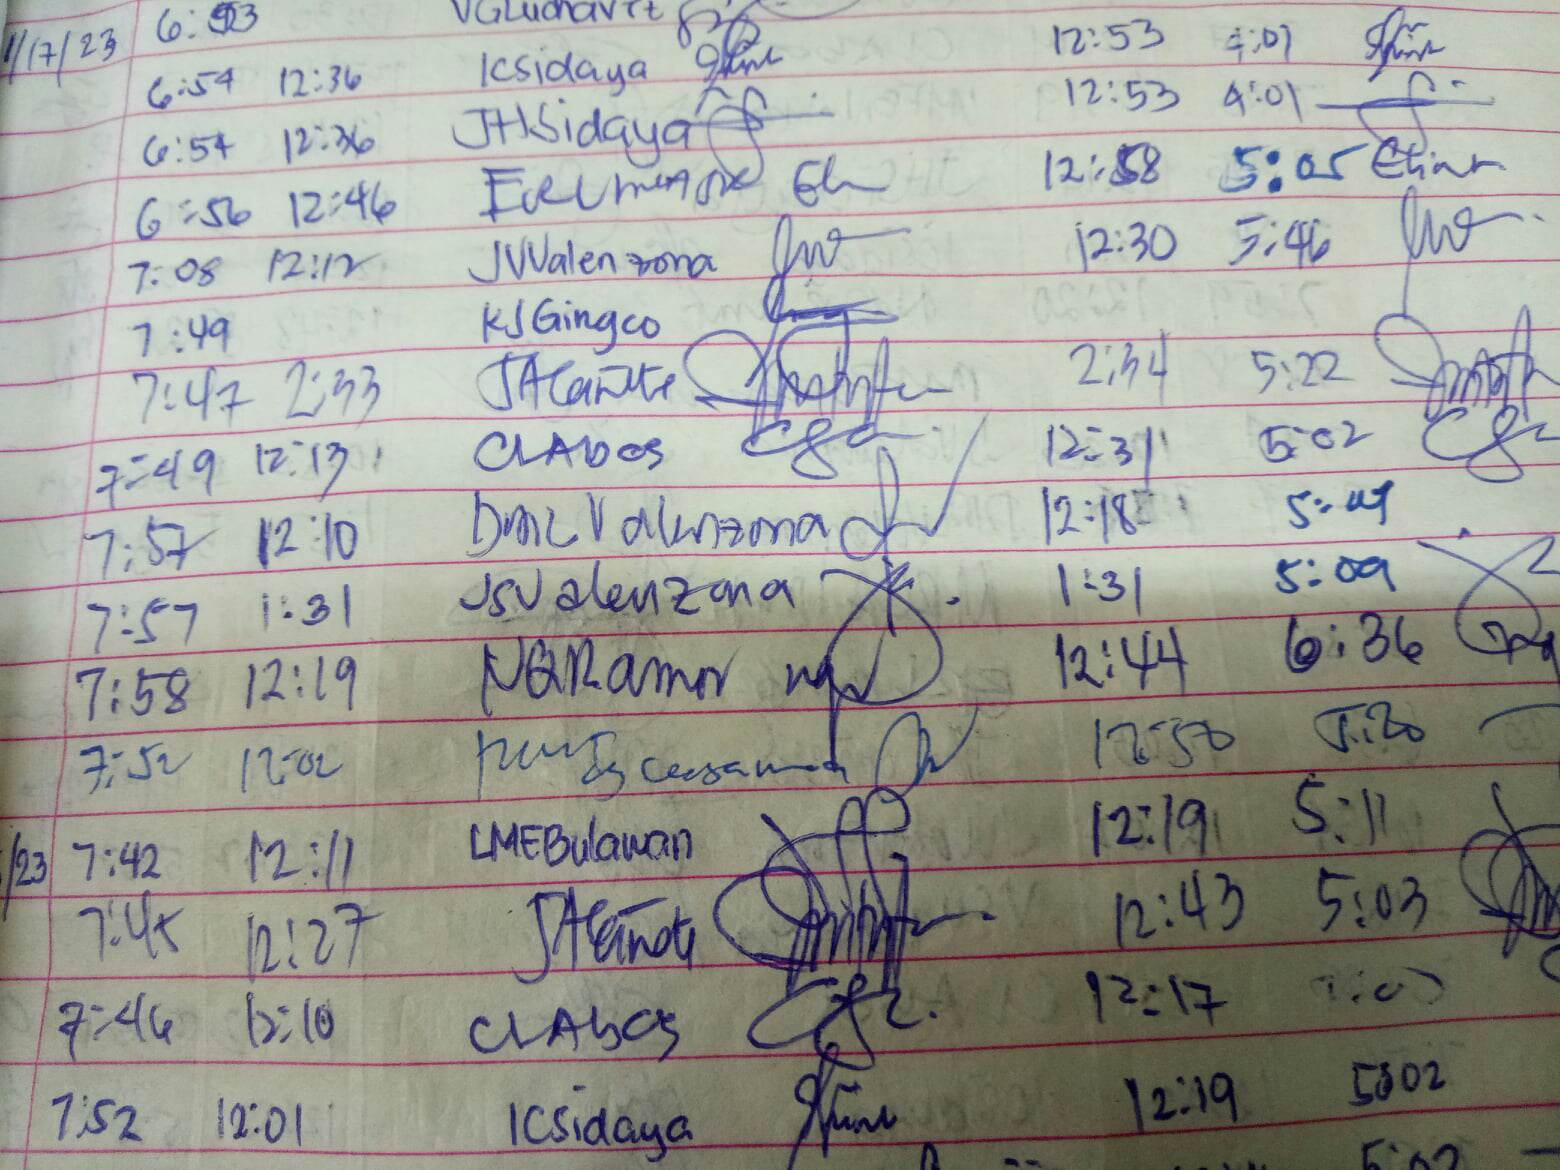 /17/23 6:53 VGLuchavez
6:54 12:36 ICSidaya 12:53 4:01
6:54 12:36 JHSidaya 12:53 4:01
6:56 12:46 12:58 5:05
7:08 12:12 JVValenzona 12:30 5:46
7:49 KJGingco
7:47 2:33 JACañete 2:34 5:22
7:49 12:13 CLAbos 12:31 5:02
7:57 12:10 DMLValenzona 12:18
7:57 1:31 JSValenzona 1:31 5:09
7:58 12:19 NGRamor 12:44 6:36
7:52 12:02 12:50 5:20
/23 7:42 12:11 LMEBulawan 12:19 5:11
7:45 12:27 JACañete 12:43 5:03
7:46 12:10 CLAbos 12:17
7:52 12:01 ICSidaya 12:19 5:02
5:02